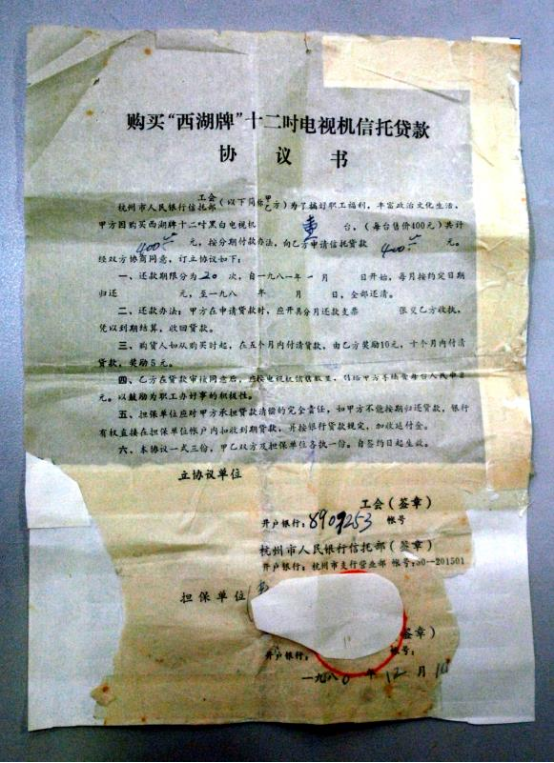 购买“西湖牌”十二吋电视机信托贷款
协 议 书
工会
杭州市人民银行信托部(以下简称甲乙方)为了搞好职工福利,丰富政治文化生活,
甲方因购买西湖牌十二吋黑白电视机 壹 台,(每台售价400元)共计
400 元,按分期付款办法,向乙方申请信托贷款 400 元。
经双方协商同意,订立协议如下:
一、还款期限分为20次,自一九八一年一月 日开始,每月按约定日期
归还 元,至一九八 年 月 日,全部还清。
二、还款办法:甲方在申请贷款时,应开具分月还款支票 张交乙方收执,
凭以到期结算,收回贷款。
三、购货人如从购买时起,在五个月内付清货款,由乙方奖励10元,十个月内付清
货款,奖励5元。
四、乙方在贷款审核同意后,
元。以鼓励为职工办好事的积极性。
五、担保单位应对甲方承担贷款清偿的完全责任,如甲方不能按期归还贷款,银行
有权直接在担保单位帐户内扣收到期贷款,并按银行贷款规定,加收延付金。
六、本协议一式三份,甲乙双方及担保单位各执一份。自签约日起生效。
立协议单位
工会(签章)
开户银行:8909253 帐号
杭州市人民银行信托部(签章)
开户银行:杭州市支行营业部 帐号:
担保单位
签章)
开户银行: 帐号:
一九八0年12月